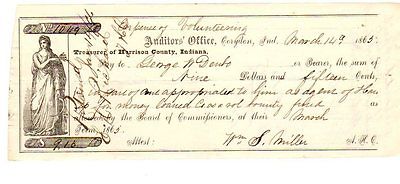 No. 1049
Expense of Volunteering
Auditors' Office, Corydon, Ind. March 14th 1865
Treasurer of Harrison County, Indiana,
Pay to George W Denbo or Bearer, the sum of
Nine Dollars and fifteen Cents,
in part of am't appropriated to him as agent of
for money loaned county
Allowed by the Board of Commissioners, at their March
Term, 1865.
$ 9.15
Attest: Wm S. Miller A. H. C.